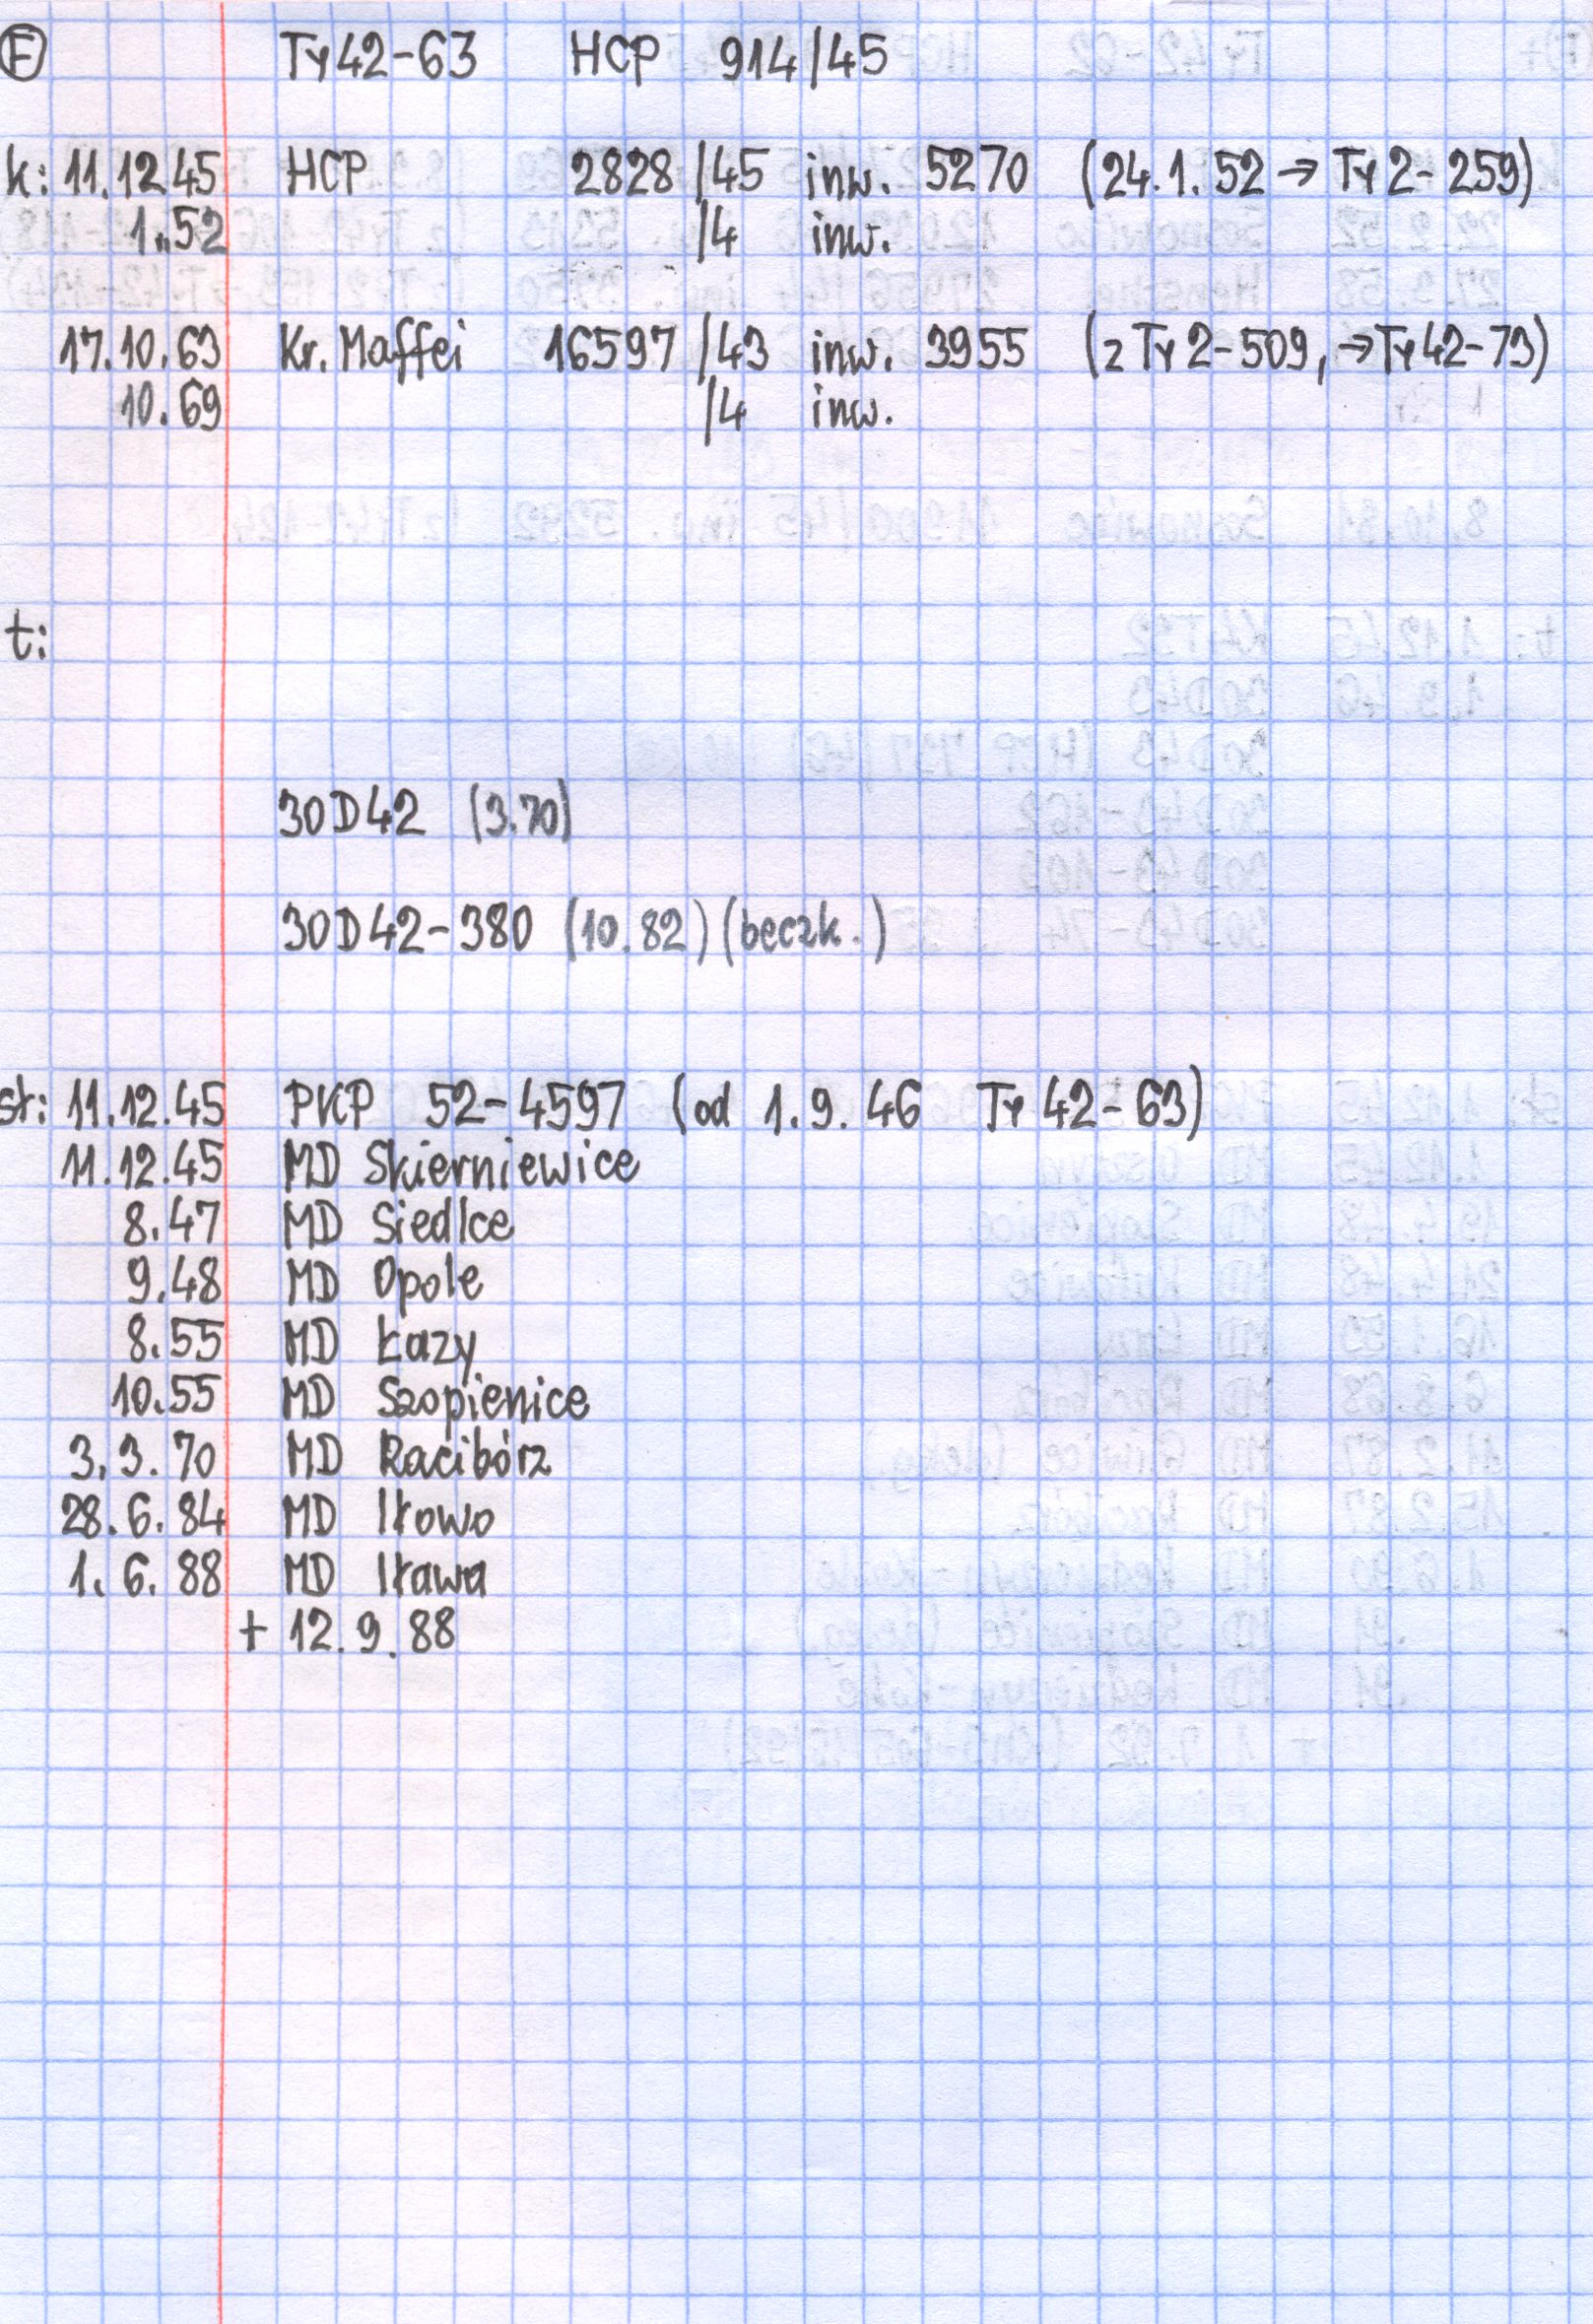 F Ty42-63 HCP 914/45
k: 11.12.45 HCP 2828/45 inw. 5270 (24.1.52 → Ty2-259)
1..52 /4 inw.
17.10.63 Kr. Maffei 16597/43 inw. 3955 (z Ty2-509, → Ty42-73)
10.69 /4 inw.
t:
30D42 (3.70)
30D42-380 (10.82) (beczk.)
st: 11.12.45 PKP 52-4597 (od 1.9.46 Ty42-63)
11.12.45 MD Skierniewice
8.47 MD Siedlce
9.48 MD Opole
8.55 MD Łazy
10.55 MD Szopienice
3.3.70 MD Racibórz
28.6.84 MD Iłowo
1.6.88 MD Iława
+ 12.9.88